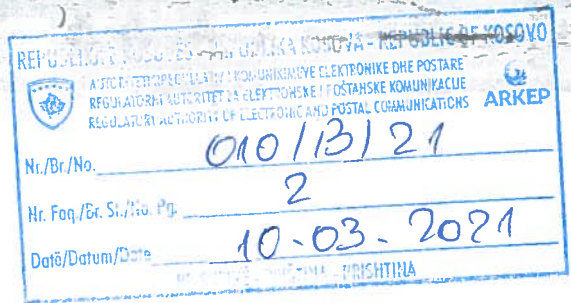 REPUBLIKA E KOSOVËS - REPUBLIKA KOSOVA - REPUBLIC OF KOSOVO
AUTORITETI RREGULLATOR I KOMUNIKIMEVE ELEKTRONIKE DHE POSTARE
REGULATORNI AUTORITET ZA ELEKTRONSKE I POŠTANSKE KOMUNIKACIJE
REGULATORY AUTHORITY OF ELECTRONIC AND POSTAL COMMUNICATIONS
ARKEP
Nr./Br./No. 010/B/21
Nr. Faq./Br. St./No. Pg. 2
Datë/Datum/Date 10-03-2021
PRISHTINA